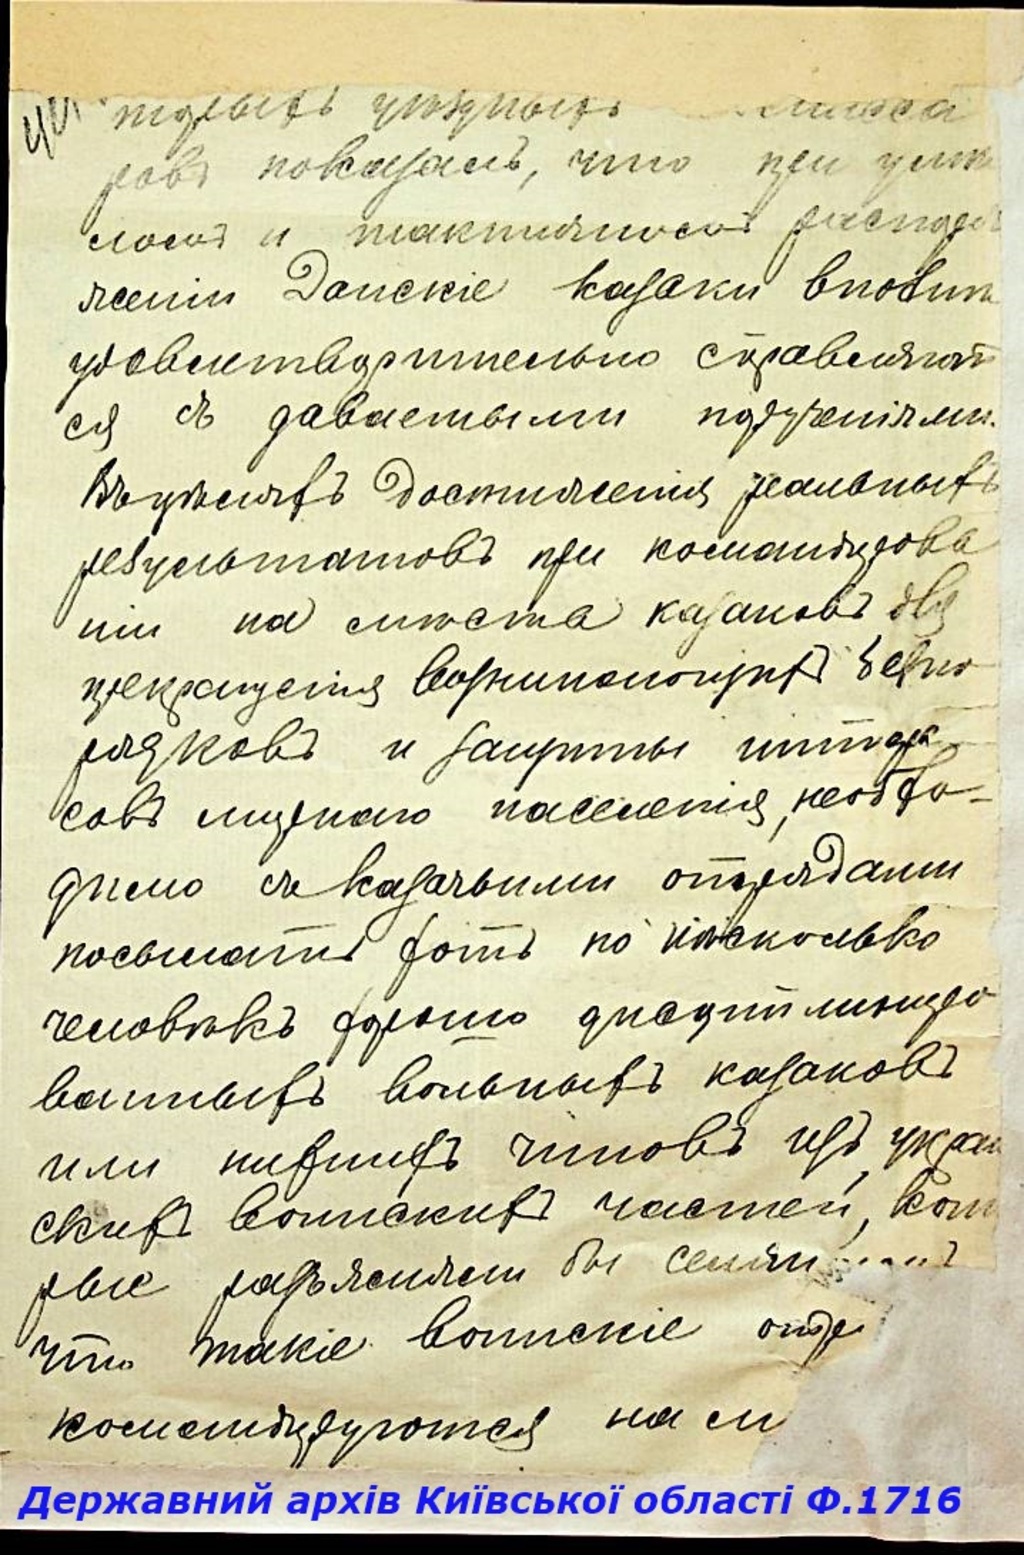 уѣздныхъ
ровъ показалъ, что при умѣ
лости и тактичности распоря
женіи Донскіе казаки вполнѣ
удовлетворительно справляют
ся съ даваемыми порученіями.
Въ цѣляхъ достиженія реальныхъ
результатовъ при командирова
ніи на мѣста казаковъ для
прекращенія возникающихъ безпо
рядковъ и защиты интере
совъ мирнаго населенія, необхо-
димо съ казачьими отрядами
посылать хоть по нѣсколько
человѣкъ хорошо дисциплиниро
ванныхъ вольныхъ казаковъ
или нижнихъ чиновъ изъ укра
скихъ воинскихъ частей, кото
рые разъясняли бы
что такіе воинскіе отря
командируются на м
Державний архів Київської області Ф.1716